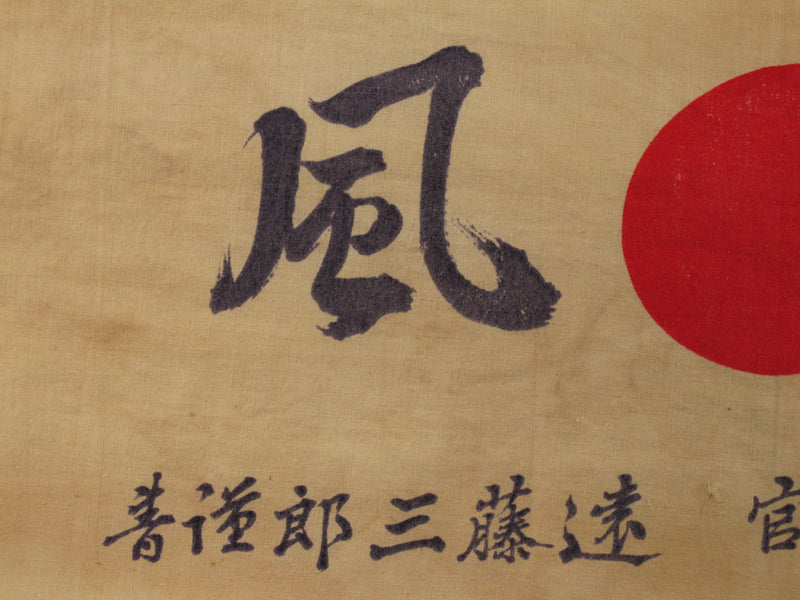 風
官 遠藤三郎謹書